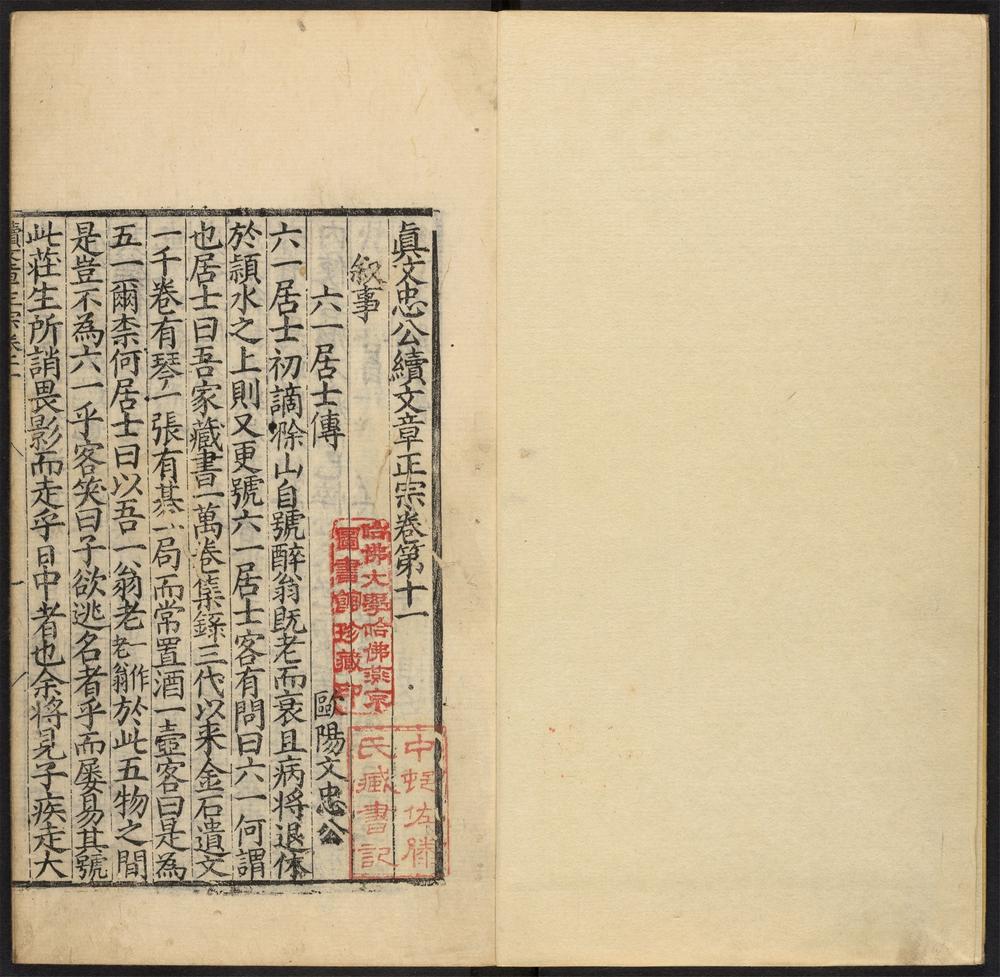 眞文忠公續文章正宗卷第十一
叙事
六一居士傳
歐陽文忠公
六一居士初謫滁山自號醉翁既老而衰且病將退休
於頴水之上則又更號六一居士客有問曰六一何謂
也居士曰吾家藏書一萬卷集錄三代以来金石遺文
一千卷有琴一張有棊一局而常置酒一壺客曰是為
五一爾柰何居士曰以吾一翁老一作老翁於此五物之間
是豈不為六一乎客笑曰子欲逃名者乎而屡易其號
此莊生所誚畏影而走乎日中者也余將見子疾走大
哈佛大學哈佛燕京
圖書館珍藏印
氏藏書記